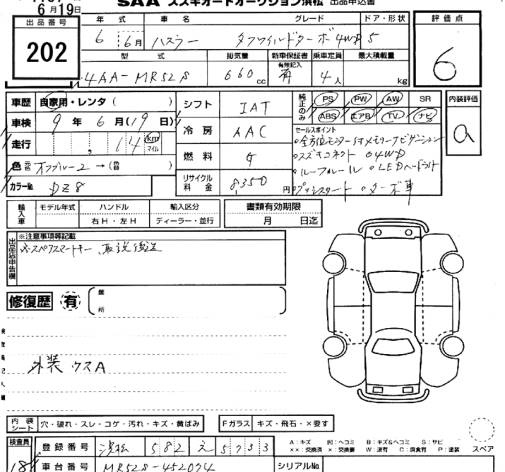 SAA スズキオートオークション浜松 出品申込書
6月19日
出品番号
202
年 式 車 名 グレード ドア・形状
6年 6月 ハスラー タフワイルドターボ4WD 5
評価点
6
型 式 排気量 新車保証書 有無記入 乗車定員 最大積載量
4AA-MR52S 660cc 有 4人 kg
車歴 自家用・レンタ( )
車検 9年 6月(19)日
走行 14 km マイル
色 オフブルー2 →(替 )
カラー№ DZ8
シフト IAT
冷房 AAC
燃料 G
リサイクル料金 8350円
純正品のみ
PS PW AW SR
ABS エアB TV ナビ
内装評価
a
セールスポイント
・全方位モニター付メモリーナビゲーション
・スズキコネクト ・4WD
・ルーフレール ・LEDヘッドライト
・プッシュスタート ・ターボ車
輸入車 モデル年式 ハンドル 輸入区分
右H・左H ディーラー・並行
書類有効期限
月 日迄
出品店申告欄
※注意事項等記載
※スペアスマートキー、取説後送
修復歴 有
箇所
外装 ウスA
内装シート 穴・破れ・スレ・コゲ・汚れ・キズ・黄ばみ
Fガラス キズ・飛石・×要す
検査員
登録番号 浜松 582 え 5733
車台番号 MR52S-452074
シリアル№
A：キズ U：ヘコミ B：キズ&ヘコミ S：サビ
××：交換済 ×：交換要 W：波有 C：腐食有 P：塗装
スペア